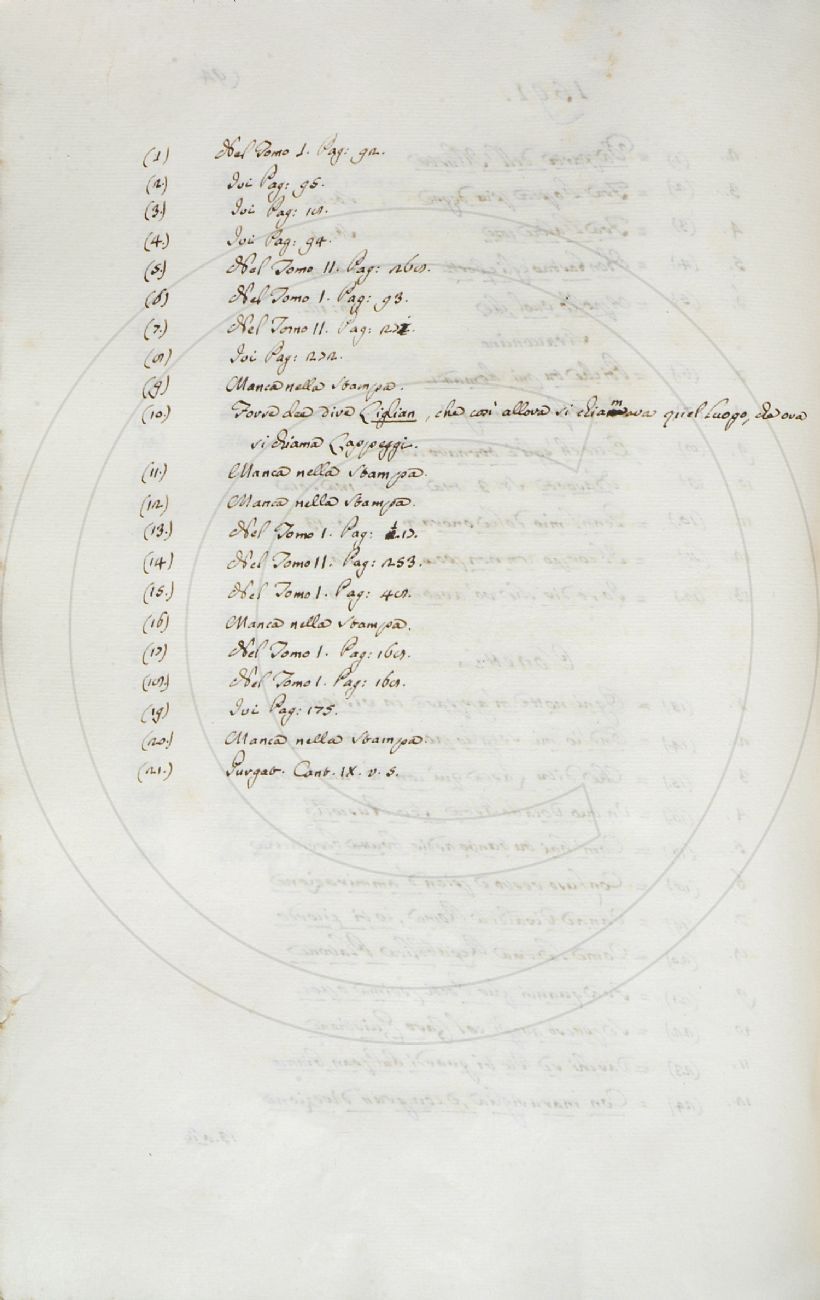 (1) Nel Tomo I. Pag: 92.
(2.) Ivi Pag: 95.
(3.) Ivi Pag: 18.
(4.) Ivi Pag: 94.
(5.) Nel Tomo II. Pag: 268.
(6) Nel Tomo I. Pag: 93.
(7.) Nel Tomo II. Pag: 271.
(8) Ivi Pag: 272.
(9) Manca nella Stampa.
(10.) Forse dee dire Ciglian, che così allora si chiamava quel Luogo, che ora
si chiama Cappeggi.
(11.) Manca nella Stampa.
(12) Manca nella Stampa.
(13.) Nel Tomo I. Pag: 17.
(14) Nel Tomo II. Pag: 253.
(15.) Nel Tomo I. Pag: 48.
(16) Manca nella Stampa.
(17) Nel Tomo I. Pag: 168.
(18.) Nel Tomo I. Pag: 168.
(19) Ivi Pag: 175.
(20.) Manca nella Stampa
(21.) Purgat. Cant. IX. v. 5.